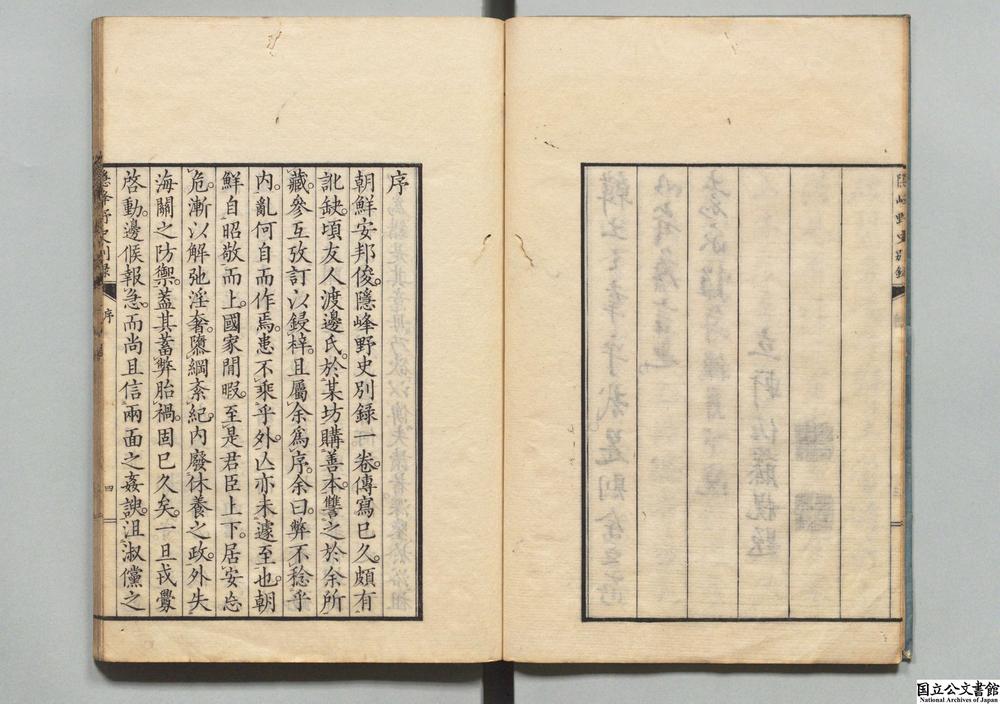 隱峰野史別録
序
朝鮮安邦俊隱峰野史別録一卷傳寫已久頗有
訛缺頃友人渡邊氏於某坊購善本讐之於余所
藏參互攷訂以鋟梓且屬余爲序余曰弊不稔乎
内亂何自而作焉患不乘乎外亾亦未遽至也朝
鮮自昭敬而上國家閒暇至是君臣上下居安忘
危漸以解弛淫奢隳綱紊紀内廢休養之政外失
海關之防禦蓋其蓄弊胎禍固已久矣一旦戎釁
啓動邊候報急而尚且信兩面之姦諛沮淑儻之
隱峰野史別録
序
四
国立公文書館
National Archives of Japan